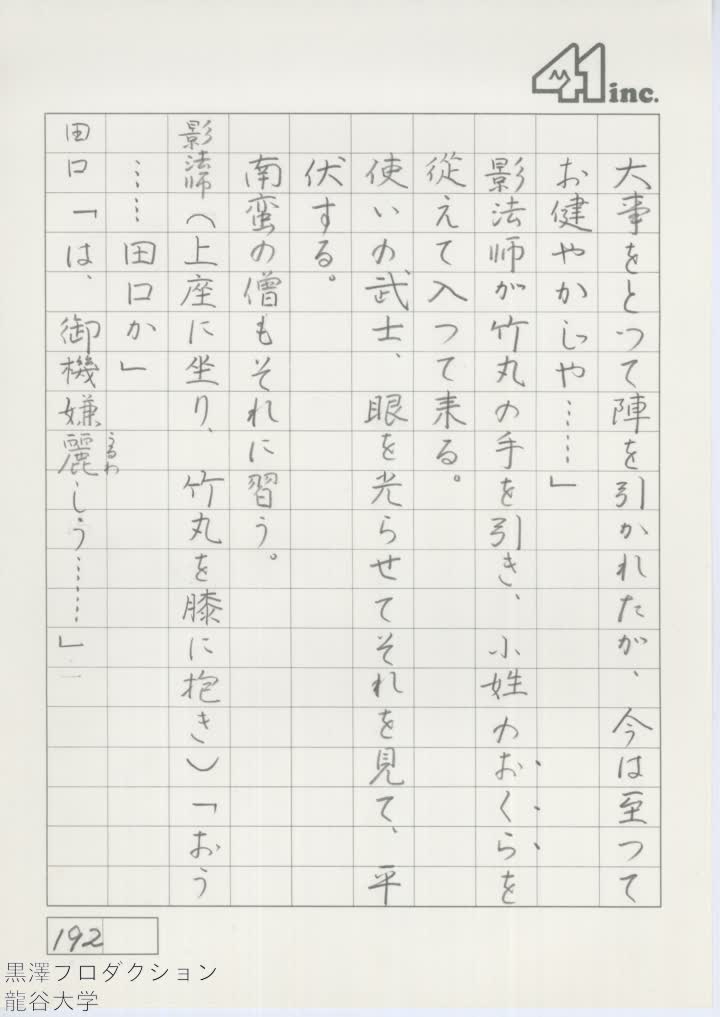 41 inc.
大事をとつて陣を引かれたが、今は至つて
お健やかじや……」
影法師が竹丸の手を引き、小姓のおくらを
従えて入つて来る。
使いの武士、眼を光らせてそれを見て、平
伏する。
南蛮の僧もそれに習う。
影法師（上座に坐り、竹丸を膝に抱き）「おう
……田口か」
田口「は、御機嫌麗しう……」
うるわ
192
黒澤プロダクション
龍谷大学